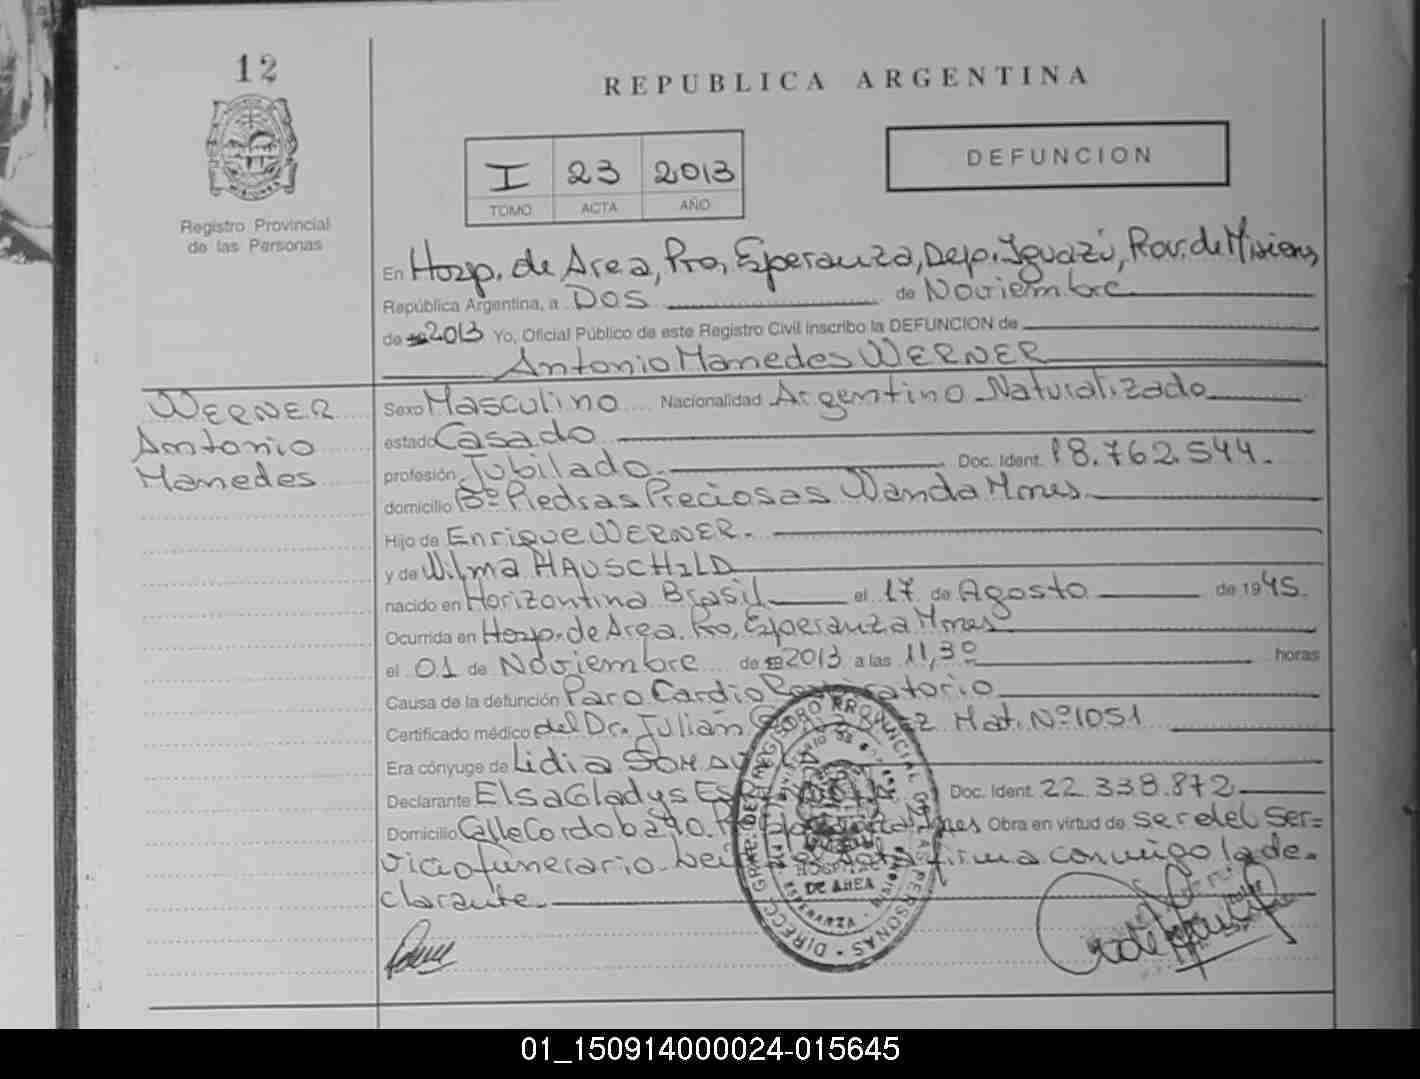 12
REPUBLICA ARGENTINA
I 23 2013
TOMO ACTA AÑO
DEFUNCION
Registro Provincial
de las Personas
En Hosp. de Area, Pto, Esperanza, Dep. Iguazú, Prov. de Misiones,
República Argentina, a DOS de Noviembre
de 2013 Yo, Oficial Público de este Registro Civil inscribo la DEFUNCION de
Antonio Mamedes WERNER
WERNER
Antonio
Mamedes
Sexo Masculino Nacionalidad Argentino Naturalizado
estado Casado
profesión Jubilado Doc. Ident. 18.762.544.
domicilio Bº Piedras Preciosas Wanda Mnes
Hijo de Enrique WERNER.
y de Wilma HAUSCHILD
nacido en Horizontina Brasil el 17 de Agosto de 1945
Ocurrida en Hosp. de Area. Pto, Esperanza Mnes
el 01 de Noviembre de 2013 a las 11,30 horas
Causa de la defunción Paro Cardio Respiratorio
Certificado médico del Dr. Julián Mat. Nº 1051
Era cónyuge de Lidia
Declarante Elsa Gladys Doc. Ident. 22.338.872
Domicilio Calle Cordoba Mnes Obra en virtud de ser del Ser=
vicio funerario. firma conmigo la de-
clarante.
REGISTRO PROVINCIAL DE LAS PERSONAS
HOSPITAL
DE AREA
ESPERANZA
01_150914000024-015645